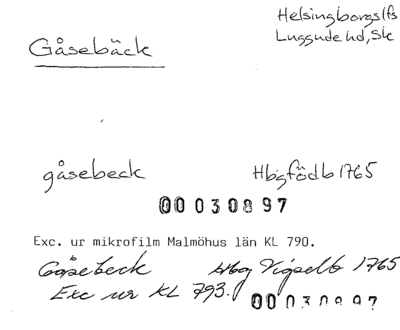 Helsingborgs lfs
Luggude hd, Sk
Gåsebäck
gåsebeck Hbgfödb 1765
00030897
Exc. ur mikrofilm Malmöhus län KL 790.
Gåsebeck Hbg Vigselb 1765
Exc ur KL 793. 00030897